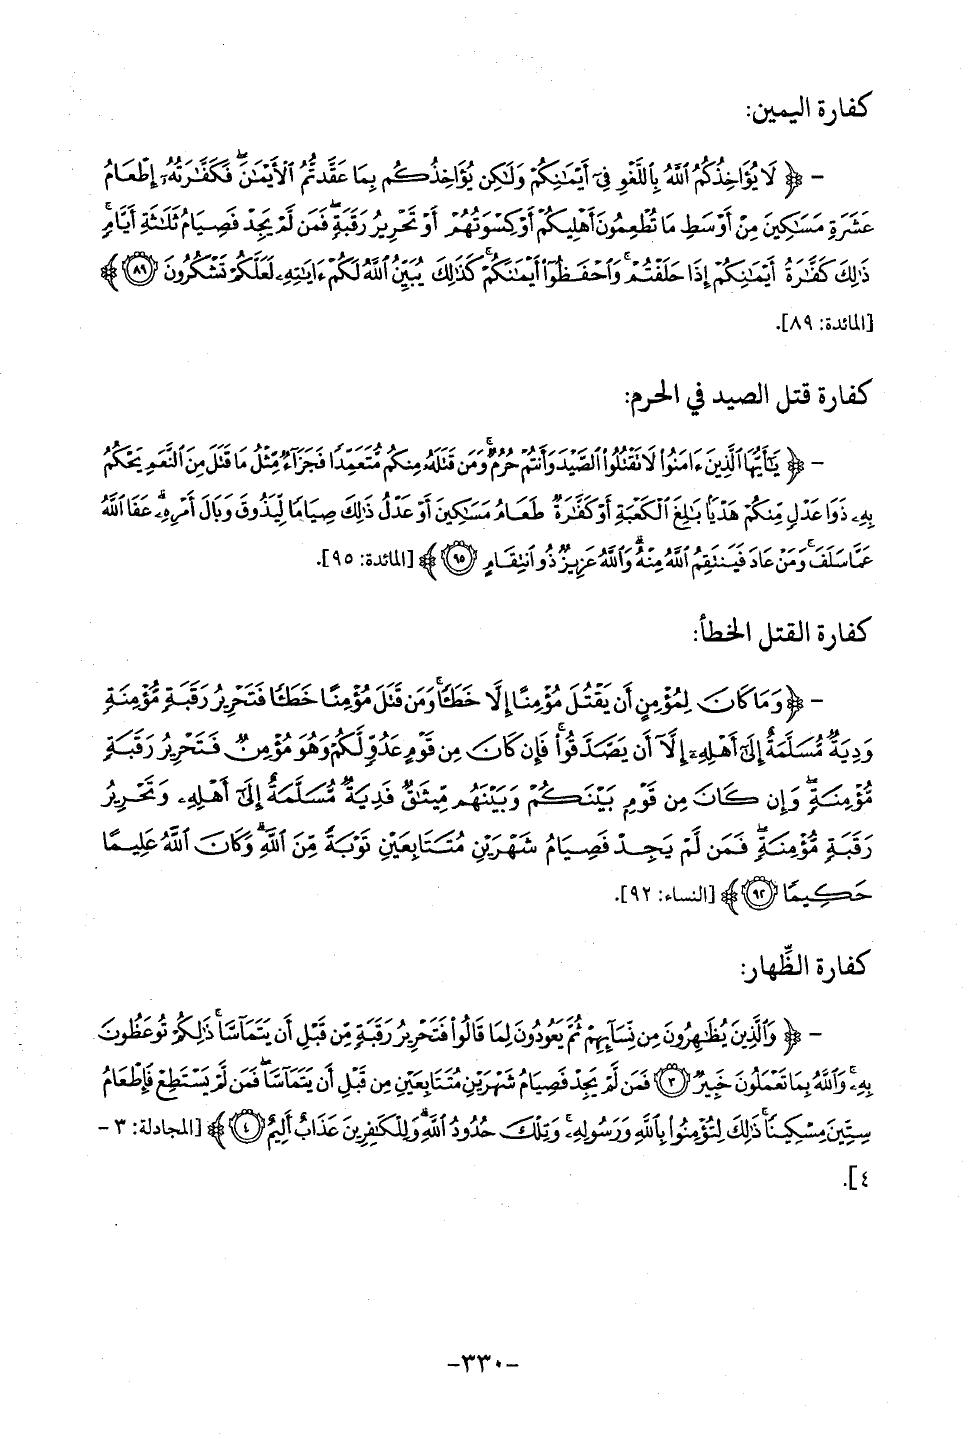 كفارة اليمين:
- ﴿ لَا يُؤَاخِذُكُمُ ٱللَّهُ بِٱللَّغْوِ فِىٓ أَيْمَـٰنِكُمْ وَلَـٰكِن يُؤَاخِذُكُم بِمَا عَقَّدتُّمُ ٱلْأَيْمَـٰنَ ۖ فَكَفَّـٰرَتُهُۥٓ إِطْعَامُ
عَشَرَةِ مَسَـٰكِينَ مِنْ أَوْسَطِ مَا تُطْعِمُونَ أَهْلِيكُمْ أَوْ كِسْوَتُهُمْ أَوْ تَحْرِيرُ رَقَبَةٍ ۖ فَمَن لَّمْ يَجِدْ فَصِيَامُ ثَلَـٰثَةِ أَيَّامٍ ۚ
ذَٰلِكَ كَفَّـٰرَةُ أَيْمَـٰنِكُمْ إِذَا حَلَفْتُمْ ۚ وَٱحْفَظُوٓا۟ أَيْمَـٰنَكُمْ ۚ كَذَٰلِكَ يُبَيِّنُ ٱللَّهُ لَكُمْ ءَايَـٰتِهِۦ لَعَلَّكُمْ تَشْكُرُونَ ٨٩ ﴾
[المائدة: ٨٩].
كفارة قتل الصيد في الحرم:
- ﴿ يَـٰٓأَيُّهَا ٱلَّذِينَ ءَامَنُوا۟ لَا تَقْتُلُوا۟ ٱلصَّيْدَ وَأَنتُمْ حُرُمٌ ۚ وَمَن قَتَلَهُۥ مِنكُم مُّتَعَمِّدًا فَجَزَآءٌ مِّثْلُ مَا قَتَلَ مِنَ ٱلنَّعَمِ يَحْكُمُ
بِهِۦ ذَوَا عَدْلٍ مِّنكُمْ هَدْيًۢا بَـٰلِغَ ٱلْكَعْبَةِ أَوْ كَفَّـٰرَةٌ طَعَامُ مَسَـٰكِينَ أَوْ عَدْلُ ذَٰلِكَ صِيَامًا لِّيَذُوقَ وَبَالَ أَمْرِهِۦ ۗ عَفَا ٱللَّهُ
عَمَّا سَلَفَ ۚ وَمَنْ عَادَ فَيَنتَقِمُ ٱللَّهُ مِنْهُ ۗ وَٱللَّهُ عَزِيزٌ ذُو ٱنتِقَامٍ ٩٥ ﴾ [المائدة: ٩٥].
كفارة القتل الخطأ:
- ﴿ وَمَا كَانَ لِمُؤْمِنٍ أَن يَقْتُلَ مُؤْمِنًا إِلَّا خَطَـًٔا ۚ وَمَن قَتَلَ مُؤْمِنًا خَطَـًٔا فَتَحْرِيرُ رَقَبَةٍ مُّؤْمِنَةٍ
وَدِيَةٌ مُّسَلَّمَةٌ إِلَىٰٓ أَهْلِهِۦٓ إِلَّآ أَن يَصَّدَّقُوا۟ ۚ فَإِن كَانَ مِن قَوْمٍ عَدُوٍّ لَّكُمْ وَهُوَ مُؤْمِنٌ فَتَحْرِيرُ رَقَبَةٍ
مُّؤْمِنَةٍ ۖ وَإِن كَانَ مِن قَوْمٍۭ بَيْنَكُمْ وَبَيْنَهُم مِّيثَـٰقٌ فَدِيَةٌ مُّسَلَّمَةٌ إِلَىٰٓ أَهْلِهِۦ وَتَحْرِيرُ
رَقَبَةٍ مُّؤْمِنَةٍ ۖ فَمَن لَّمْ يَجِدْ فَصِيَامُ شَهْرَيْنِ مُتَتَابِعَيْنِ تَوْبَةً مِّنَ ٱللَّهِ ۗ وَكَانَ ٱللَّهُ عَلِيمًا
حَكِيمًا ٩٢ ﴾ [النساء: ٩٢].
كفارة الظِّهار:
- ﴿ وَٱلَّذِينَ يُظَـٰهِرُونَ مِن نِّسَآئِهِمْ ثُمَّ يَعُودُونَ لِمَا قَالُوا۟ فَتَحْرِيرُ رَقَبَةٍ مِّن قَبْلِ أَن يَتَمَآسَّا ۚ ذَٰلِكُمْ تُوعَظُونَ
بِهِۦ ۚ وَٱللَّهُ بِمَا تَعْمَلُونَ خَبِيرٌ ٣ فَمَن لَّمْ يَجِدْ فَصِيَامُ شَهْرَيْنِ مُتَتَابِعَيْنِ مِن قَبْلِ أَن يَتَمَآسَّا ۖ فَمَن لَّمْ يَسْتَطِعْ فَإِطْعَامُ
سِتِّينَ مِسْكِينًا ۚ ذَٰلِكَ لِتُؤْمِنُوا۟ بِٱللَّهِ وَرَسُولِهِۦ ۚ وَتِلْكَ حُدُودُ ٱللَّهِ ۗ وَلِلْكَـٰفِرِينَ عَذَابٌ أَلِيمٌ ٤ ﴾ [المجادلة: ٣ -
٤].
-٣٣٠-